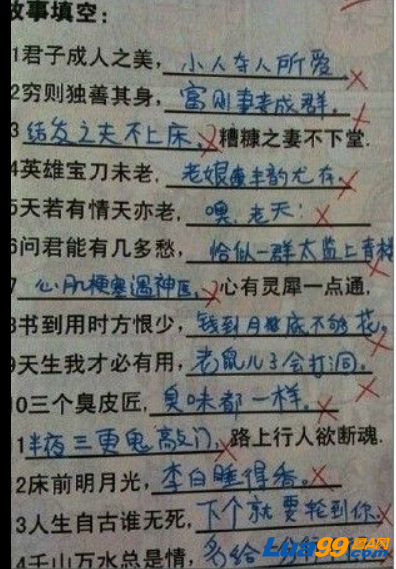 故事填空：
1君子成人之美，小人夺人所爱
2穷则独善其身，富则妻妾成群。
3结发之夫不上床，糟糠之妻不下堂.
4英雄宝刀未老，老娘丰韵尤存。
5天若有情天亦老，嘿，老天：
6问君能有几多愁，恰似一群太监上青楼
7心肌梗塞遇神医，心有灵犀一点通，
8书到用时方恨少，钱到月底不够花。
9天生我才必有用，老鼠儿子会打洞。
0三个臭皮匠，臭味都一样。
1半夜三更鬼敲门，路上行人欲断魂.
2床前明月光，李白睡得香。
3人生自古谁无死，下个就要轮到你.
4千山万水总是情，多给一分
Lua99